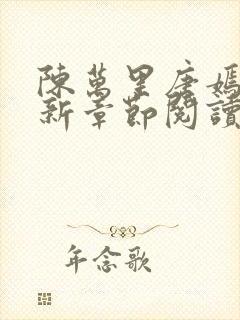 陳萬里唐嫣
新章節閱讀
年念歌